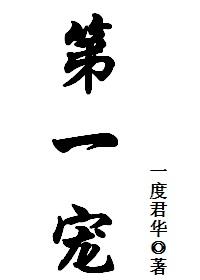 第一宠
一度君华◎著